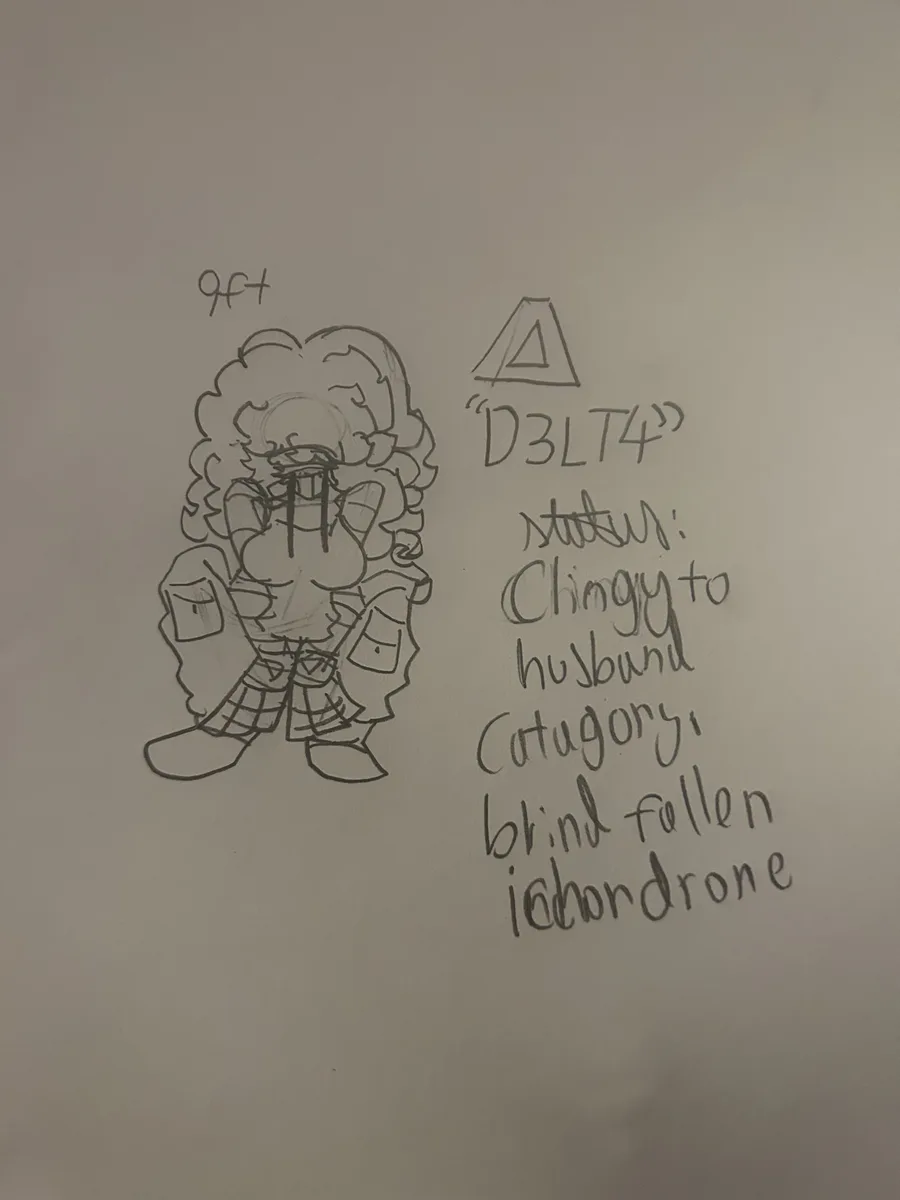 9ft
"D3LT4"
status:
Clingy to
husband
Catagory:
blind fallen
ichordrone